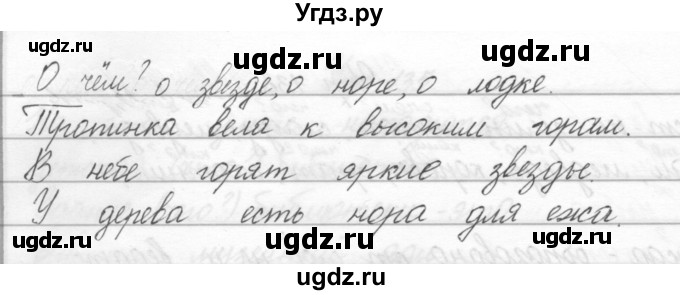 Угдз.ру
ugdz.ru ugdz.ru ugdz.ru
О чём? о звезде, о норе, о лодке.
Тропинка вела к высоким горам.
ugdz.ru ugdz.ru
В небе горят яркие звезды.
У дерева есть нора для ежа.
ugdz.ru ugdz.ru ugdz.ru
ugdz.ru